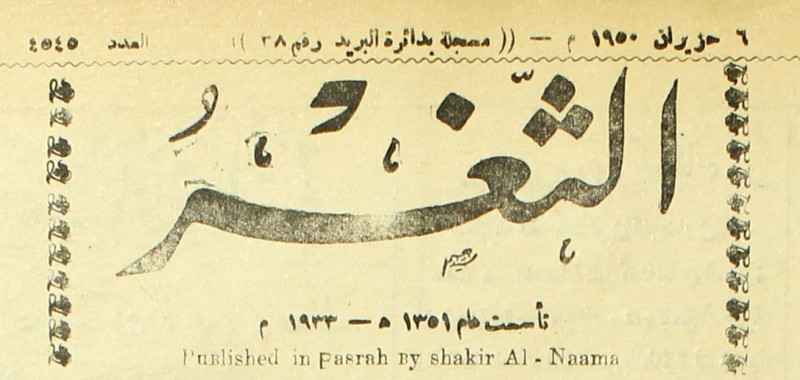 ٦ حزيران ١٩٥٠ م — (( مسجلة بدائرة البريد رقم ٣٨ )) العدد ٤٥٤٥
الثَّغْرُ
تأسست عام ١٣٥١ ه — ١٩٣٣ م
PuBlished in pasrah By shakir Al - Naama